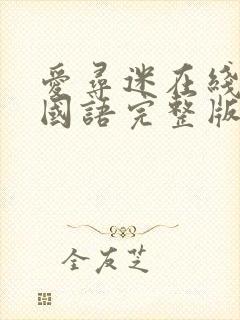 愛尋迷在綫
國語完整版
全友芝